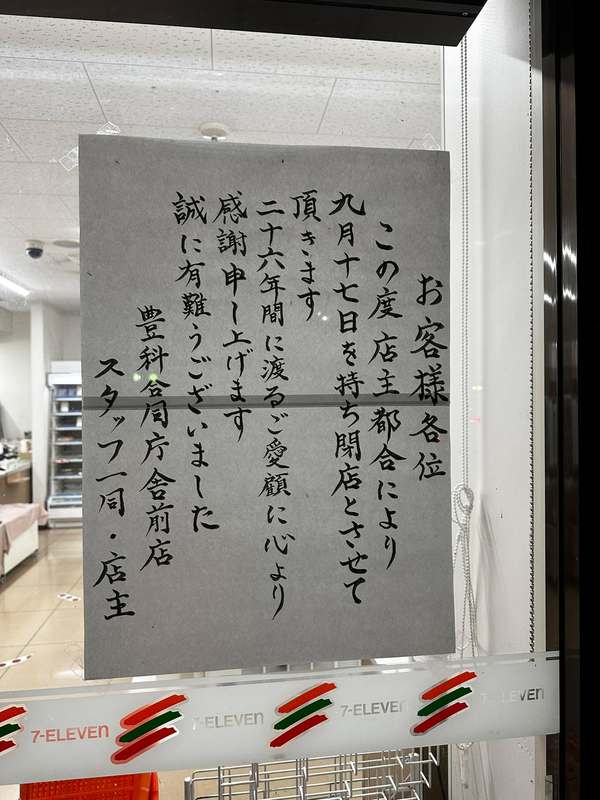 お客様各位
この度店主都合により
九月十七日を持ち閉店とさせて
頂きます
二十六年間に渡るご愛顧に心より
感謝申し上げます
誠に有難うございました
豊科合同庁舎前店
スタッフ一同・店主
7-ELEVEN
7-ELEVEN
7-ELEVEN
7-ELEVEN